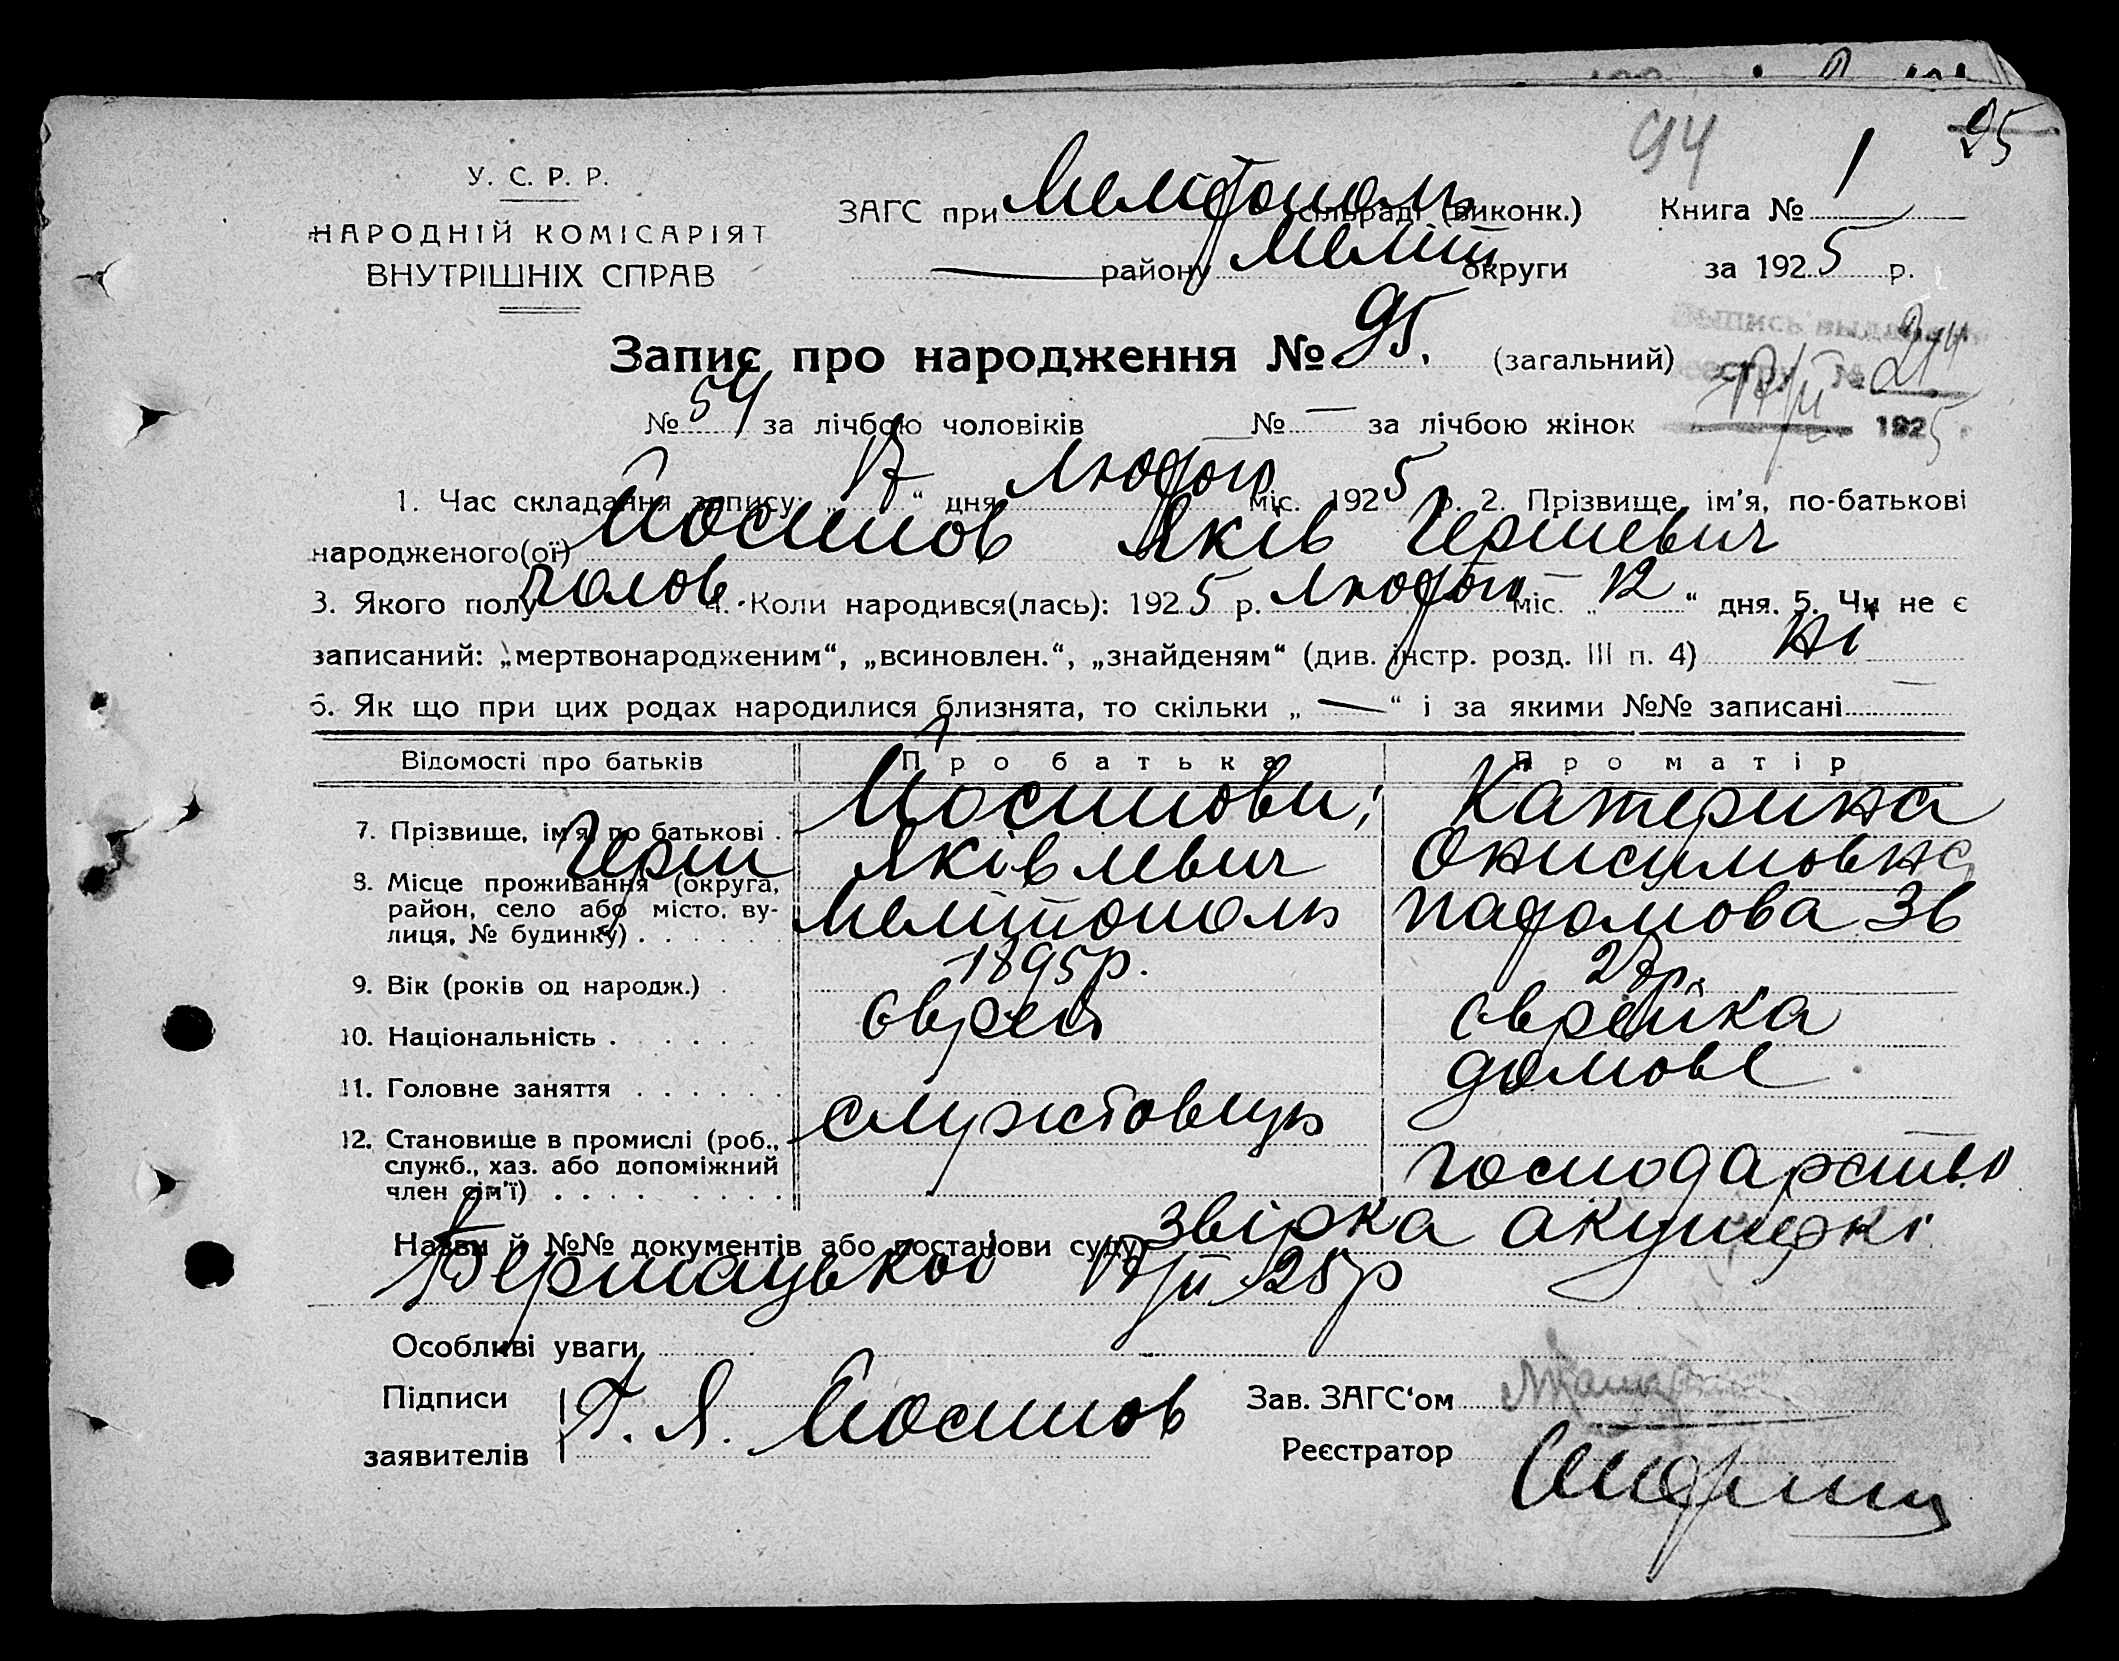 94
95
У. С. Р. Р.
НАРОДНІЙ КОМІСАРІЯТ
ВНУТРІШНІХ СПРАВ
ЗАГС при Мелітополь сільраді (виконк.) Книга № 1
району Меліт округи за 1925 р.
Запис про народження № 95. (загальний)
Выпись выдана
реестру № 214
17/II 1925
№ 54 за лічбою чоловіків № — за лічбою жінок
1. Час складання запису: „17“ дня Лютого міс. 1925 р. 2. Прізвище, ім'я, по-батькові
народженого(ої) Йосипов Яків Гершевич
3. Якого полу чолов. 4. Коли народився(лась): 1925 р. Лютого міс. „12“ дня. 5. Чи не є
записаний: „мертвонародженим“, „всиновлен.“, „знайденям“ (див. інстр. розд. III п. 4) Ні
6. Як що при цих родах народилися близнята, то скільки „—“ і за якими №№ записані —
Відомості про батьків Про батька Про матір
7. Прізвище, ім'я, по батькові . Йосипови; Катерина
Герш Яківлевич Онисимовна
8. Місце проживання (округа,
район, село або місто, ву-
лиця, № будинку) . . . . . . Мелітополь
9. Вік (років од народж.) . 1895р. 27р.
10. Національність . . . . . . Єврей Єврейка
11. Головне заняття . . . . . . домове
службовець
12. Становище в промислі (роб.,
служб., хаз. або допоміжний
член сім'ї) . . . . . . . . господарство
Назви й №№ документів або постанови суду звірка акушеркі
17/II 25р
Особливі уваги
Підписи
заявителів Г. Я. Йосипов
Зав. ЗАГС'ом
Реєстратор